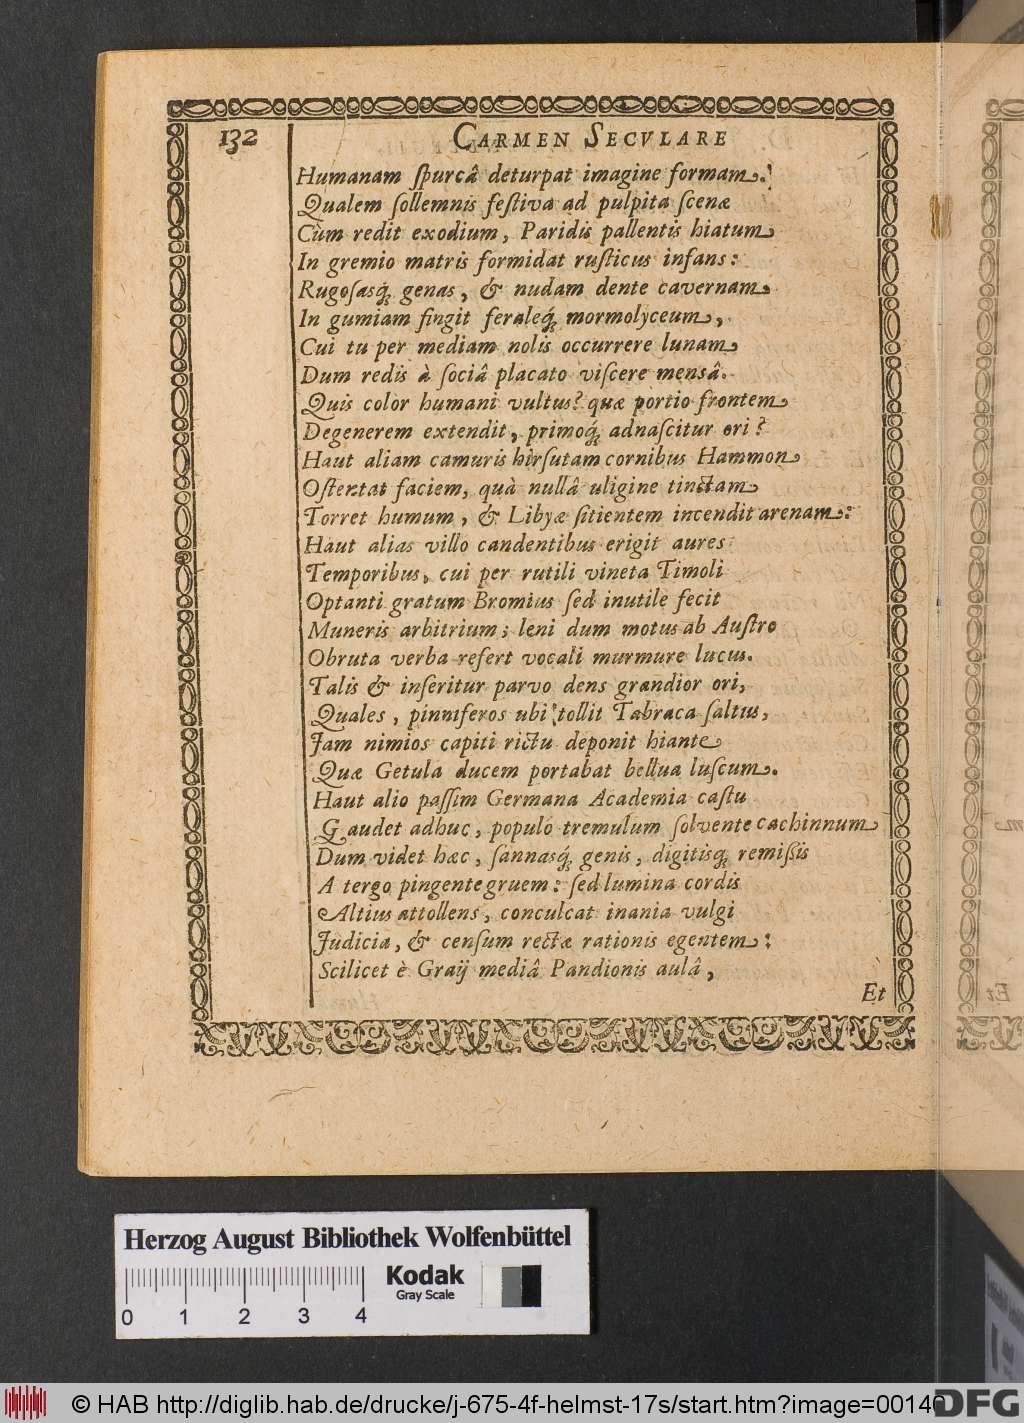 132 CARMEN SECVLARE
Humanam ſpurcâ deturpat imagine formam.
Qualem ſollemnis feſtiva ad pulpita ſcenæ
Cùm redit exodium, Paridis pallentis hiatum
In gremio matris formidat ruſticus infans:
Rugoſasq́; genas, & nudam dente cavernam
In gumiam fingit feraleq́; mormolyceum,
Cui tu per mediam nolis occurrere lunam
Dum redis à ſociâ placato viſcere mensâ.
Quis color humani vultus? quæ portio frontem
Degenerem extendit, primoq́; adnaſcitur ori?
Haut aliam camuris hirſutam cornibus Hammon
Oſtentat faciem, quà nullâ uligine tinctam
Torret humum, & Libyæ ſitientem incendit arenam:
Haut alias villo candentibus erigit aures
Temporibus, cui per rutili vineta Timoli
Optanti gratum Bromius ſed inutile fecit
Muneris arbitrium; leni dum motus ab Auſtro
Obruta verba refert vocali murmure lucus.
Talis & inſeritur parvo dens grandior ori,
Quales, pinniferos ubi tollit Tabraca ſaltus,
Jam nimios capiti rictu deponit hiante
Quæ Getula ducem portabat bellua luſcum.
Haut alio paſſim Germana Academia caſtu
Gaudet adhuc, populo tremulum ſolvente cachinnum
Dum videt hæc, ſannasq́; genis, digitisq́; remiſſis
A tergo pingente gruem: ſed lumina cordis
Altius attollens, conculcat inania vulgi
Judicia, & cenſum rectæ rationis egentem:
Scilicet è Graij mediâ Pandionis aulâ,
Et
Herzog August Bibliothek Wolfenbüttel
Kodak
Gray Scale
0 1 2 3 4
© HAB http://diglib.hab.de/drucke/j-675-4f-helmst-17s/start.htm?image=00140
DFG